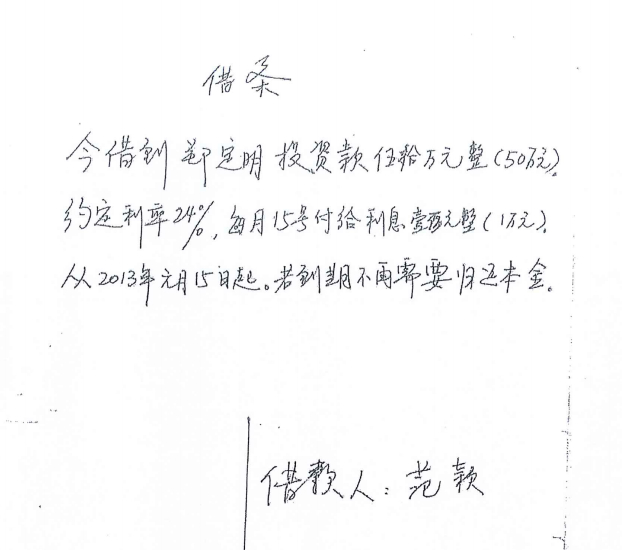 借条
今借到郑定明投资款伍拾万元整(50万元)。
约定利率24%，每月15号付给利息壹万元整(1万元)。
从2013年元月15日起。若到期不再需要归还本金。
借款人：范颖